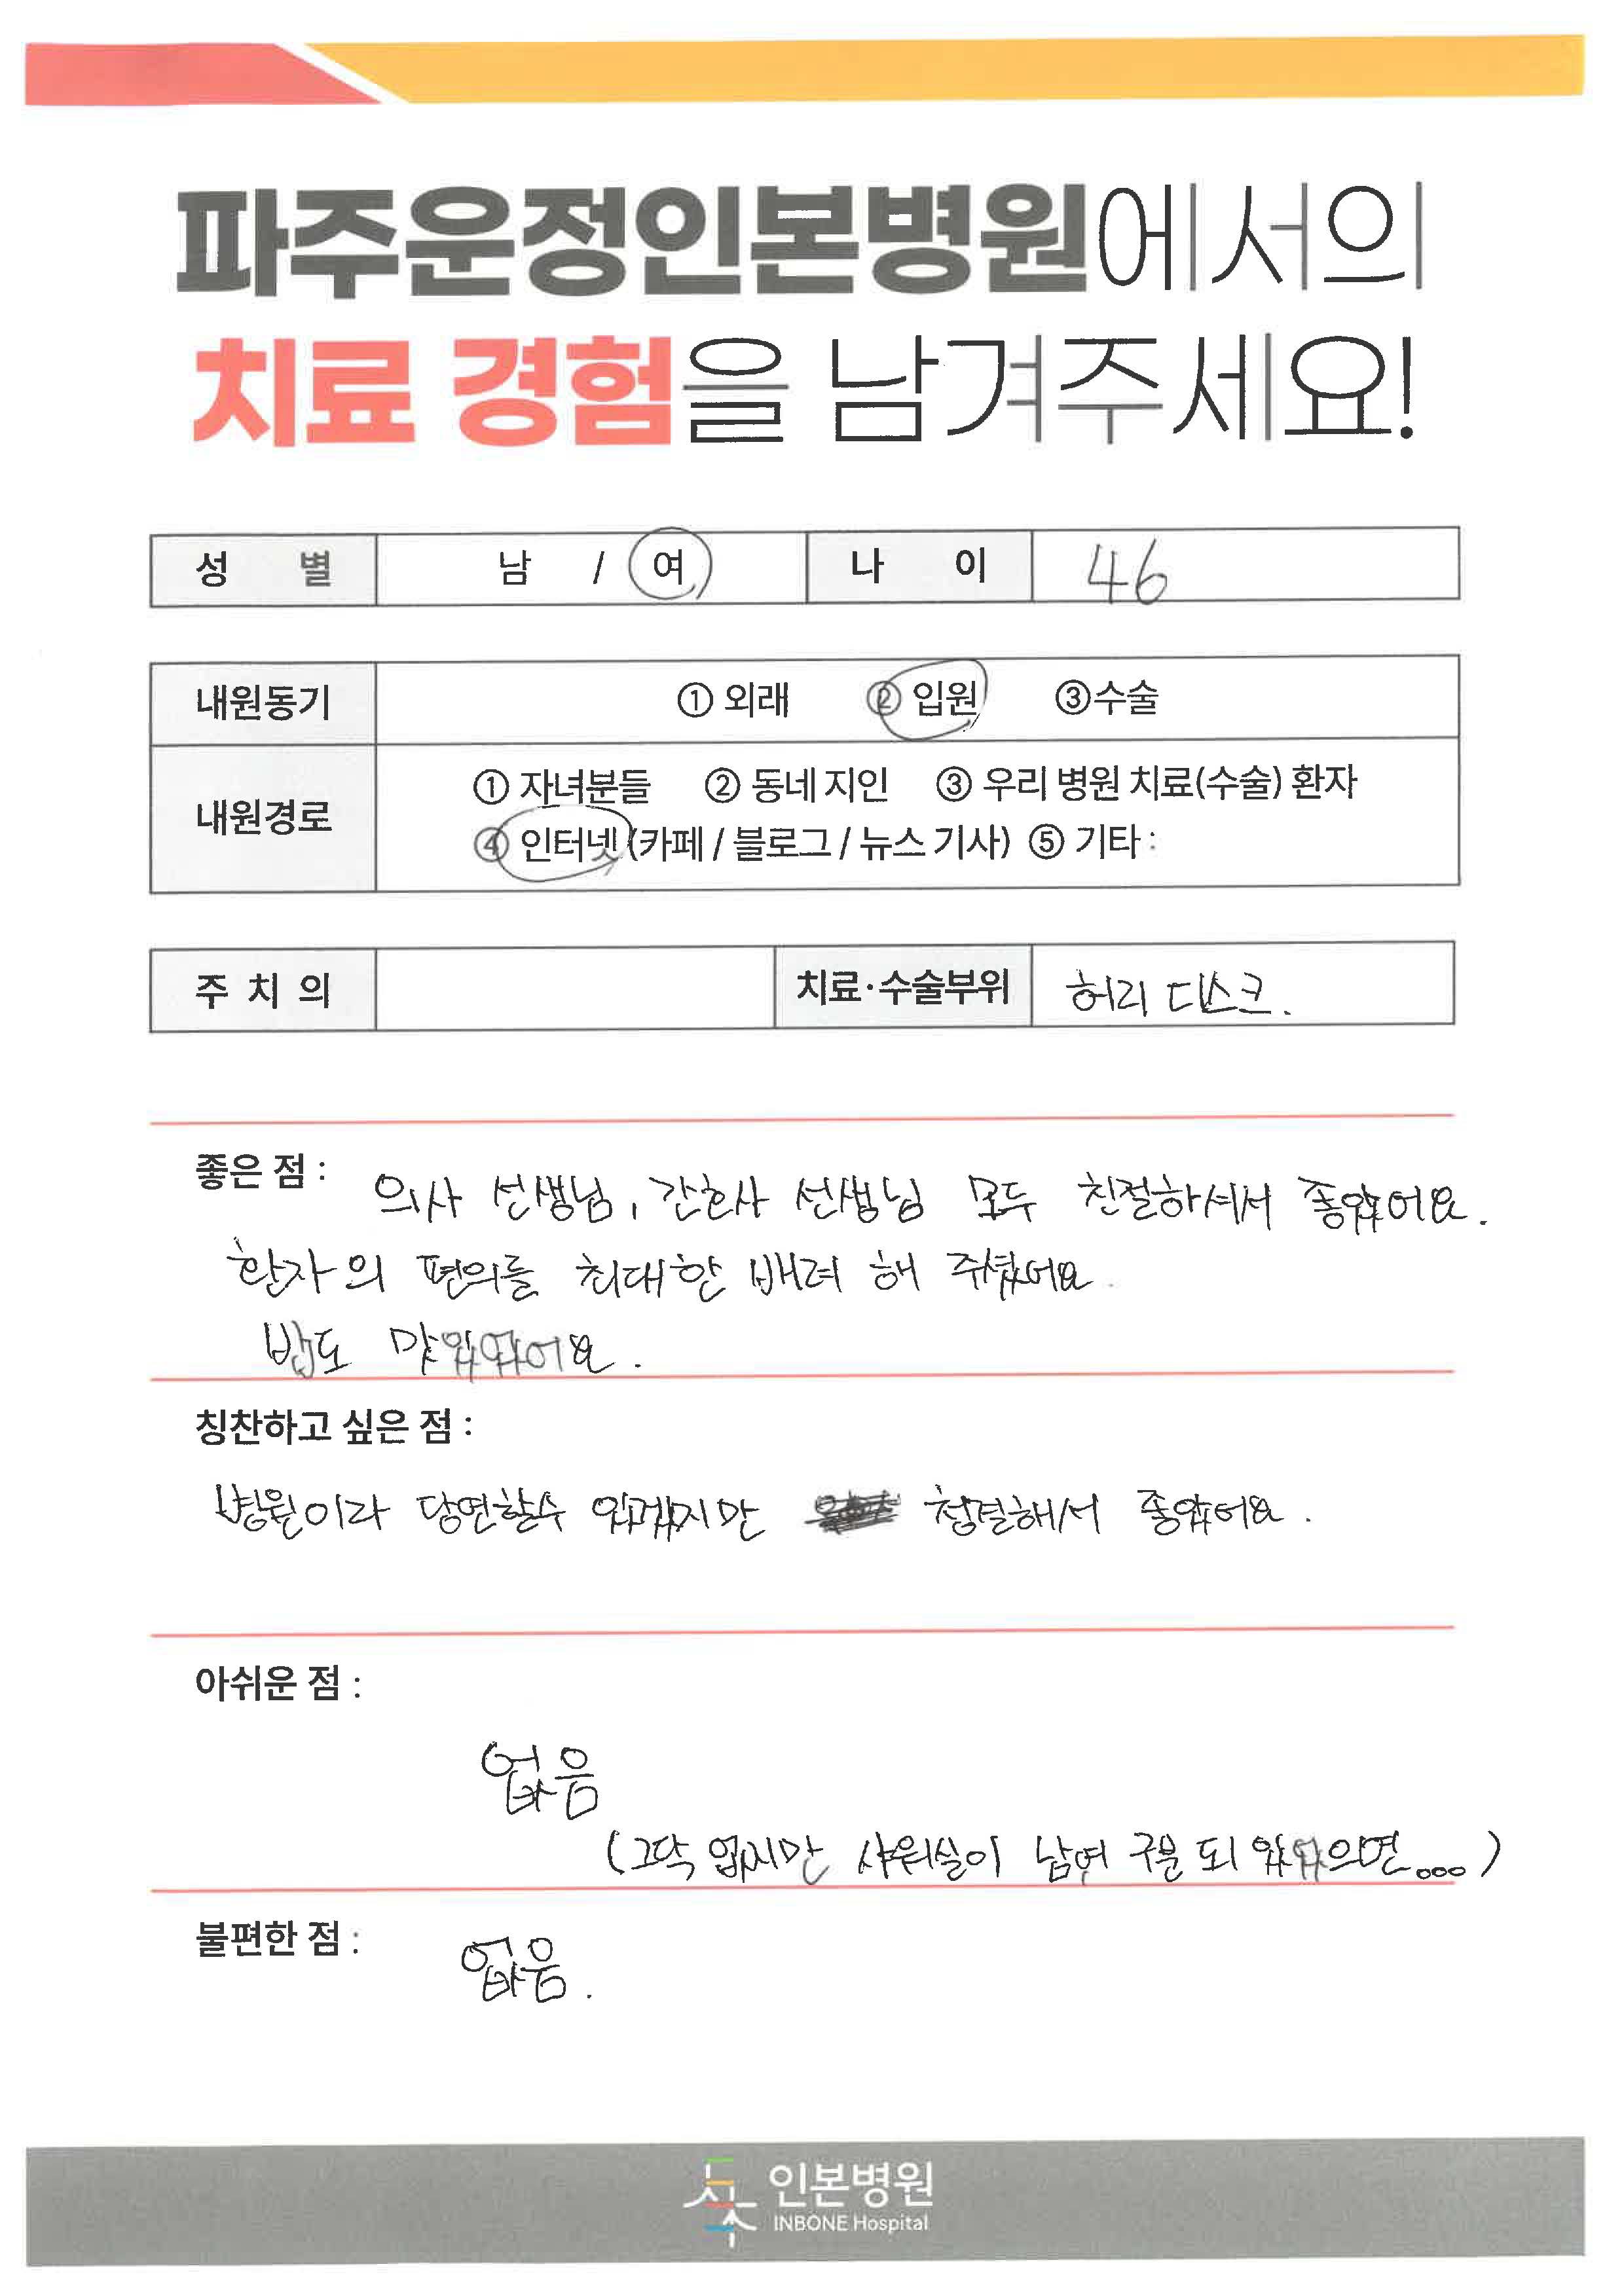 파주운정인본병원에서의
치료 경험을 남겨주세요!
성 별 남 / 여 나 이 46
내원동기 ① 외래 ② 입원 ③수술
내원경로 ① 자녀분들 ② 동네 지인 ③ 우리 병원 치료(수술) 환자
④ 인터넷 (카페 / 블로그 / 뉴스 기사) ⑤ 기타 :
주 치 의 치료·수술부위 허리 디스크.
좋은 점 : 의사 선생님, 간호사 선생님 모두 친절하셔서 좋았어요.
환자의 편의를 최대한 배려 해 주셨어요.
밥도 맛있었어요.
칭찬하고 싶은 점 :
병원이라 당연할수 있겠지만 청결해서 좋았어요.
아쉬운 점 :
없음
(그닥 없지만 샤워실이 남여 구분 되 있었으면...)
불편한 점 : 없음.
인본병원
INBONE Hospital